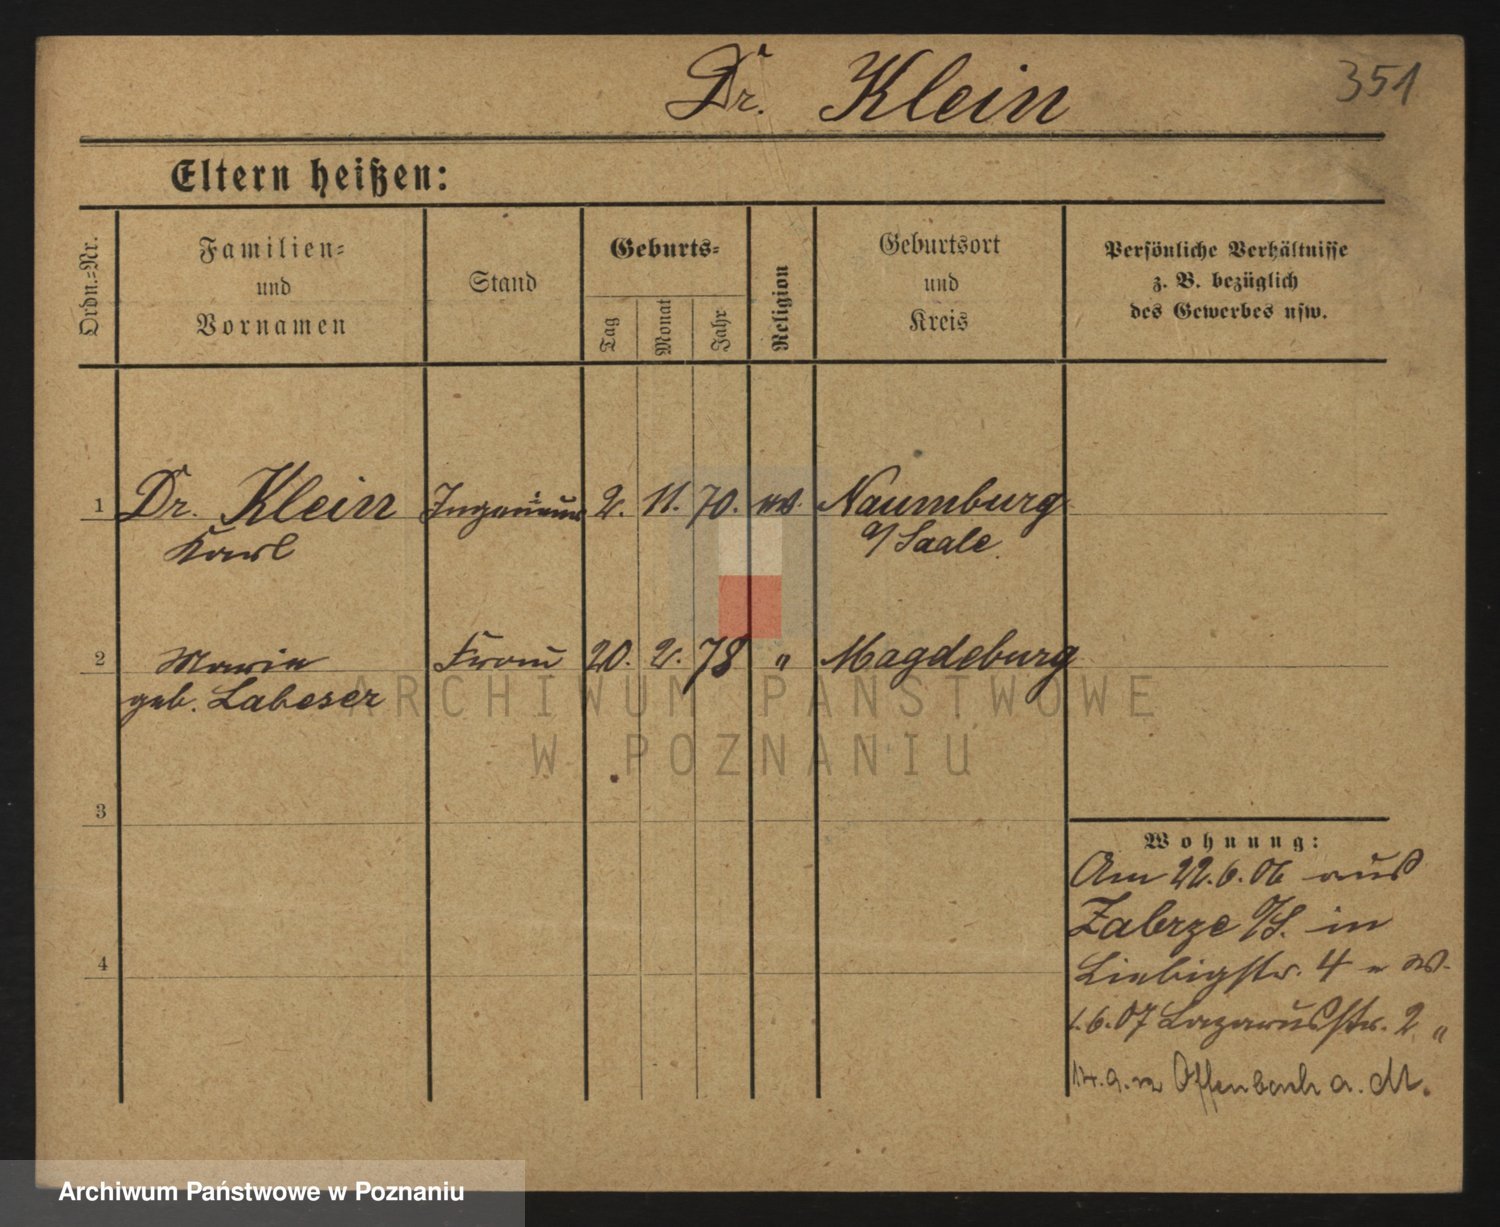 Dr. Klein
351
Eltern heißen:
Ordn.=Nr.
Familien=
und
Vornamen
Stand
Geburts=
Tag
Monat
Jahr
Religion
Geburtsort
und
Kreis
Persönliche Verhältnisse
z. B. bezüglich
des Gewerbes usw.
1 Dr. Klein Ingenieur 2. 11. 70. ev. Naumburg
Karl a/Saale.
2 Marie Frau 20. 2. 78 " Magdeburg
geb. Labeser
3
4
Wohnung:
Am 22.6.06 aus
Zabrze O/S. in
Liebigstr. 4 W.
1.6.07 Lazarusstr. 2 "
Offenbach a. M.
ARCHIWUM PAŃSTWOWE
W POZNANIU
Archiwum Państwowe w Poznaniu